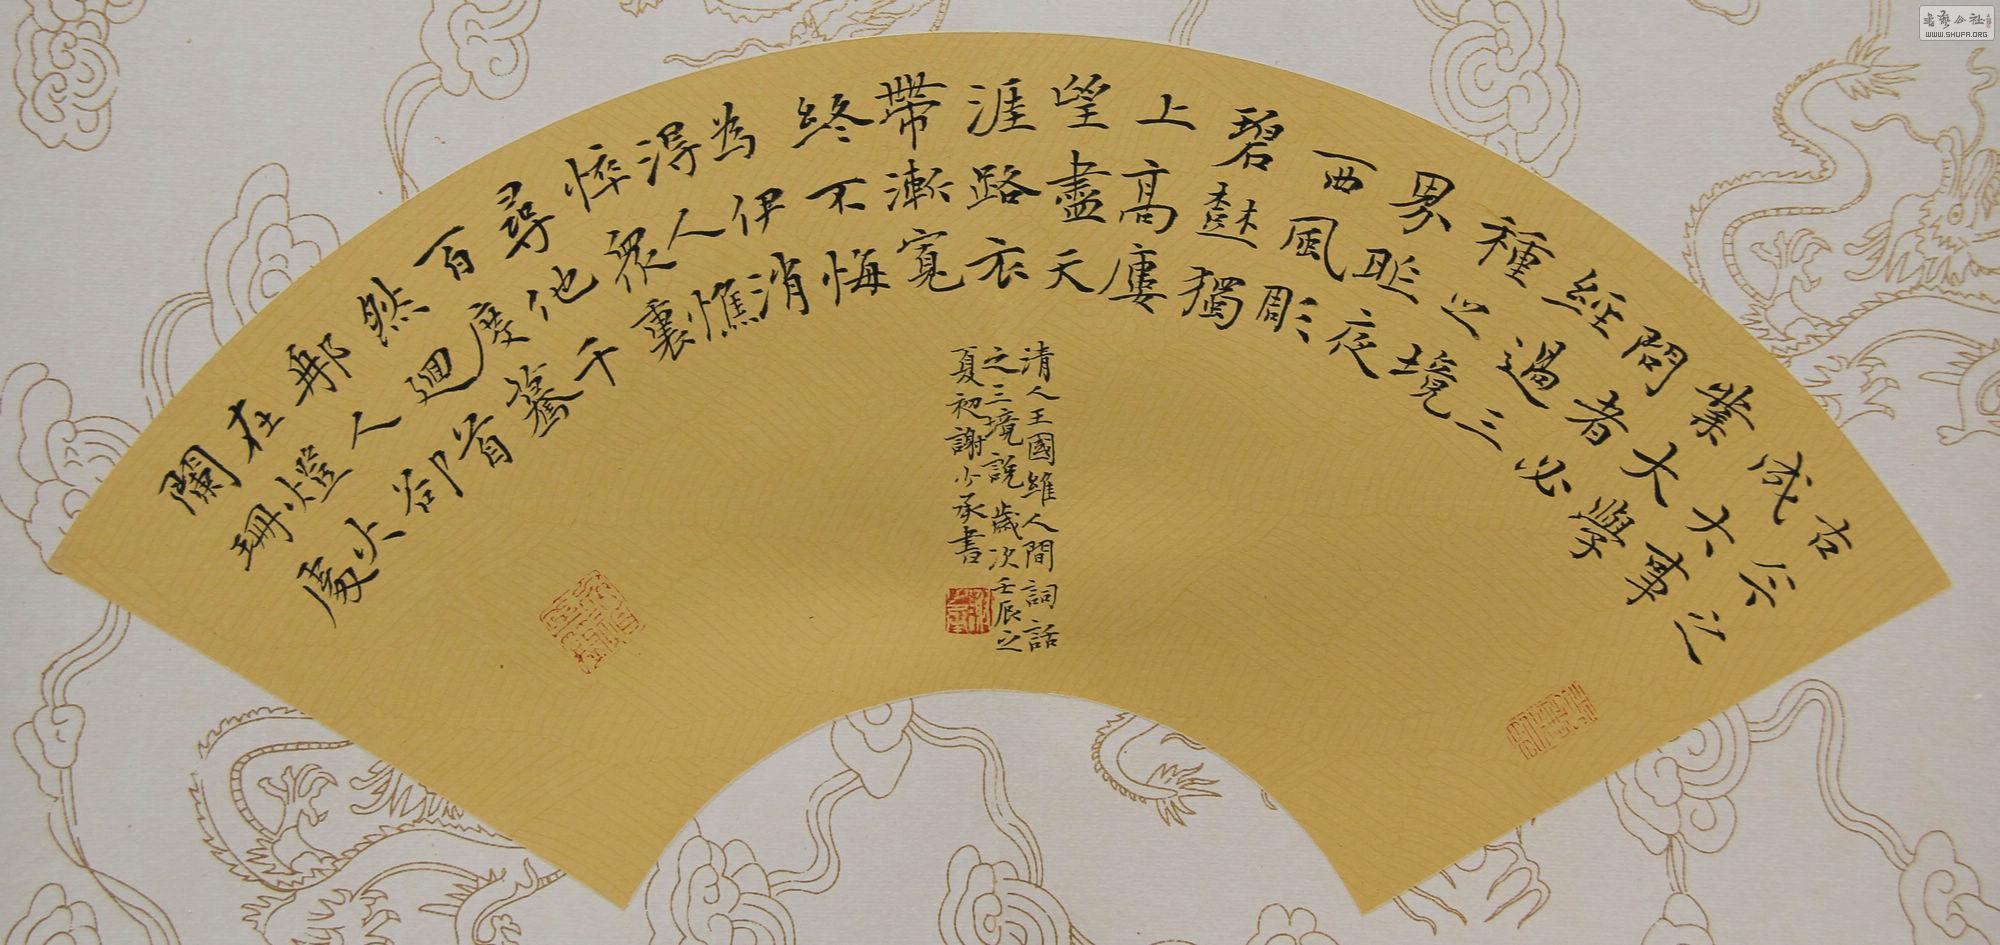 古今之
成大事
業大學
問者必
經過三
種之境
界昨夜
西風彫
碧樹獨
上高樓
望盡天
涯路衣
帶漸寬
終不悔
為伊消
得人憔
悴眾裏
尋他千
百度驀
然廻首
那人卻
在燈火
闌珊處
清人王國維人間詞話
之三境說歲次壬辰之
夏初謝少承書
書藝公社
WWW.SHUFA.ORG